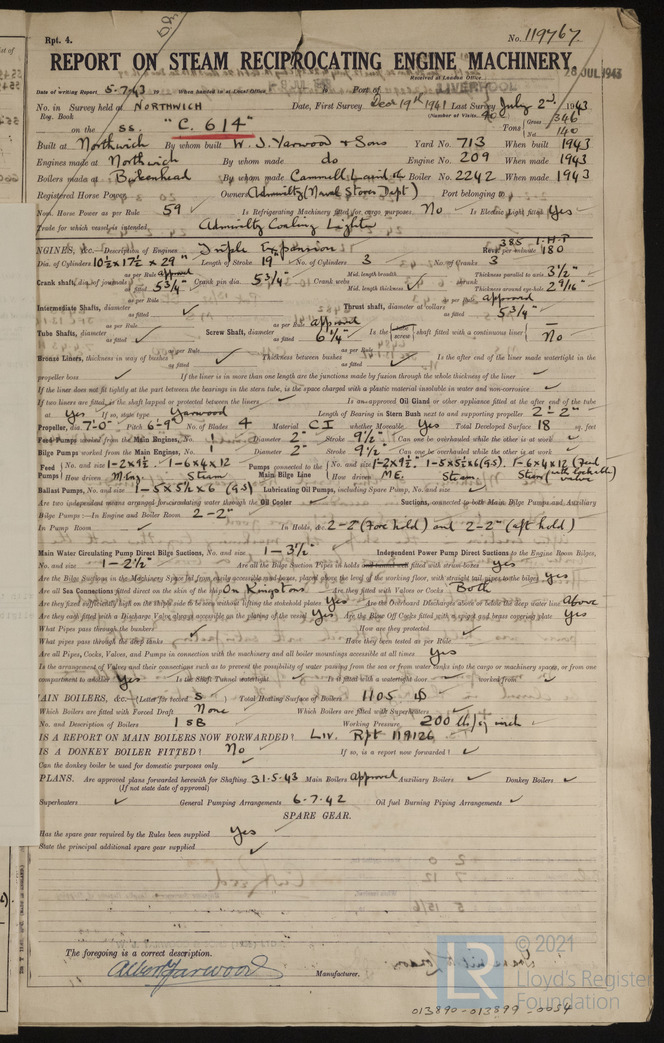 Rpt. 4.
No. 119767.
REPORT ON STEAM RECIPROCATING ENGINE MACHINERY.
Received at London Office 20 JUL 1943
Date of writing Report 5-7-43 When handed in at Local Office Port of LIVERPOOL
No. in Survey held at NORTHWICH Date, First Survey Last Survey July 2nd 1943
Reg. Book (Number of Visits
on the ss. "C. 614" Tons Gross 346 Net 140
Built at Northwich By whom built W. J. Yarwood & Sons Yard No. 713 When built 1943
Engines made at Northwich By whom made do Engine No. 209 When made 1943
Boilers made at Birkenhead By whom made Cammell Laird & Co Boiler No. 2242 When made 1943
Registered Horse Power Owners Admiralty (Naval Stores Dept) Port belonging to
Nom. Horse Power as per Rule 59 Is Refrigerating Machinery fitted for cargo purposes. No Is Electric Light fitted Yes
Trade for which vessel is intended Admiralty Coaling Lighter
ENGINES, &c. Description of Engines Triple Expansion 385 I.H.P Revs. per minute 180
Dia. of Cylinders 10½ x 17½ x 29" Length of Stroke 19" No. of Cylinders 3 No. of Cranks 3
Crank shaft, dia. of journals as per Rule approved as fitted 5¾" Crank pin dia. 5¾" Crank webs Mid. length breadth Mid. length thickness shrunk Thickness parallel to axis 3½" Thickness around eye-hole 2 9/16"
Intermediate Shafts, diameter as per Rule as fitted ✓ Thrust shaft, diameter at collars as per Rule approved as fitted 5¾"
Tube Shafts, diameter as per Rule as fitted ✓ Screw Shaft, diameter as per Rule approved as fitted 6¼" Is the screw shaft fitted with a continuous liner No
Bronze Liners, thickness in way of bushes as per Rule as fitted ✓ Thickness between bushes as per Rule as fitted ✓ Is the after end of the liner made watertight in the
propeller boss ✓ If the liner is in more than one length are the junctions made by fusion through the whole thickness of the liner ✓
If the liner does not fit tightly at the part between the bearings in the stern tube, is the space charged with a plastic material insoluble in water and non-corrosive ✓
If two liners are fitted, is the shaft lapped or protected between the liners ✓ Is an approved Oil Gland or other appliance fitted at the after end of the tube
shaft Yes If so, state type Yarwood Length of Bearing in Stern Bush next to and supporting propeller 2'-2"
Propeller, dia. 7'-0" Pitch 6'-9" No. of Blades 4 Material CI whether Moveable Yes Total Developed Surface 18 sq. feet
Feed Pumps worked from the Main Engines, No. 1 Diameter 2" Stroke 9½" Can one be overhauled while the other is at work ✓
Bilge Pumps worked from the Main Engines, No. 1 Diameter 2" Stroke 9½" Can one be overhauled while the other is at work ✓
Feed Pumps No. and size 1-2x9½ 1-6x4x12 Pumps connected to the Main Bilge Line No. and size 1-2x9½ 1-5x5½x6 (G.S) 1-6x4x12 (Feed
How driven M.Eng Steam How driven M.E. Steam Steam valve)
Ballast Pumps, No. and size 1-5x5½x6 (G.S) Lubricating Oil Pumps, including Spare Pump, No. and size ✓
Are two independent means arranged for circulating water through the Oil Cooler ✓ Suctions, connected to both Main Bilge Pumps and Auxiliary
Bilge Pumps:—In Engine and Boiler Room 2-2"
In Pump Room ✓ In Holds, &c 2-2" (Fore hold) and 2-2" (aft hold)
Main Water Circulating Pump Direct Bilge Suctions, No. and size 1-3½" Independent Power Pump Direct Suctions to the Engine Room Bilges,
No. and size 1-2½" Are all the Bilge Suction Pipes in holds fitted with strum-boxes yes
Are the Bilge Suctions in the Machinery Space led from easily accessible mud boxes, placed above the level of the working floor, with straight tail pipes to the bilges yes
Are all Sea Connections fitted direct on the skin of the ship On Kingstons Are they fitted with Valves or Cocks Both
Are they fixed sufficiently high on the ship's side to be seen without lifting the stokehold plates Yes Are the Overboard Discharges above or below the deep water line Above
Are they each fitted with a Discharge Valve always accessible on the plating of the vessel Yes Are the Blow Off Cocks fitted with a spigot and brass covering plate Yes
What Pipes pass through the bunkers ✓ How are they protected ✓
What pipes pass through the deep tanks ✓ Have they been tested as per Rule ✓
Are all Pipes, Cocks, Valves, and Pumps in connection with the machinery and all boiler mountings accessible at all times Yes
Is the arrangement of Valves and their connections such as to prevent the possibility of water passing from the sea or from water tanks into the cargo or machinery spaces, or from one
compartment to another Yes Is the Shaft Tunnel watertight ✓ Is it fitted with a watertight door ✓ worked from ✓
MAIN BOILERS, &c.—(Letter for record S Total Heating Surface of Boilers 1105
Which Boilers are fitted with Forced Draft None Which Boilers are fitted with Superheaters ✓
No. and Description of Boilers 1 SB Working Pressure 200 lb/sq inch
IS A REPORT ON MAIN BOILERS NOW FORWARDED? Liv. Rpt 119126
IS A DONKEY BOILER FITTED? No If so, is a report now forwarded? ✓
Can the donkey boiler be used for domestic purposes only ✓
PLANS. Are approved plans forwarded herewith for Shafting 31.5.43 Main Boilers Approved Auxiliary Boilers ✓ Donkey Boilers ✓
(If not state date of approval)
Superheaters ✓ General Pumping Arrangements 6.7.42 Oil fuel Burning Piping Arrangements ✓
SPARE GEAR.
Has the spare gear required by the Rules been supplied Yes
State the principal additional spare gear supplied ✓
The foregoing is a correct description.
Albert Yarwood Manufacturer.
© 2021
LR Lloyd's Register
Foundation
013890-013899-0034